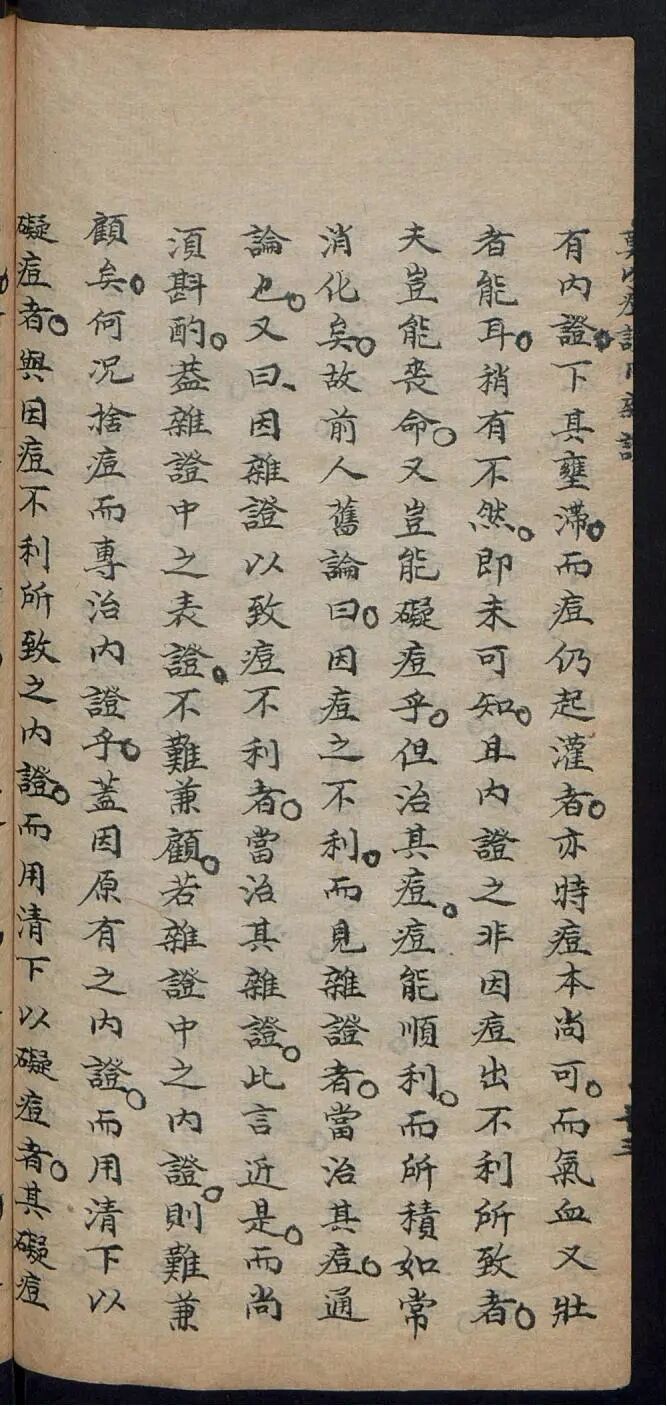 有內證。下其壅滯。而痘仍起灌者。亦時痘本尚可。而氣血又壯
者能耳。稍有不然。即未可知。且內證之非因痘出不利所致者。
夫豈能喪命。又豈能礙痘乎。但治其痘。痘能順利。而所積如常
消化矣。故前人舊論曰。因痘之不利。而見雜證者。當治其痘。通
論也。又曰、因雜證以致痘不利者。當治其雜證。此言近是。而尚
須斟酌。蓋雜證中之表證。不難兼顧。若雜證中之內證。則難兼
顧矣。何況捨痘而專治內證乎。蓋因原有之內證。而用清下以
礙痘者。與因痘不利所致之內證。而用清下以礙痘者。其礙痘